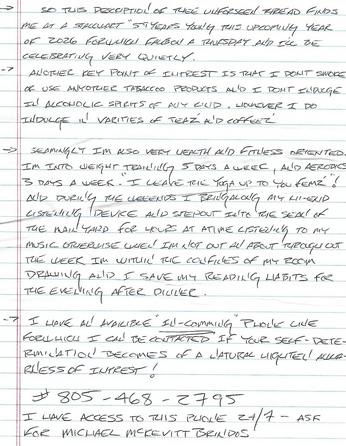 → SO THIS DESCRIPTION OF THEE UNFORSEEN THREAD FINDS
ME AT A STALWART "59 YEARS YOUNG THIS UPCOMING YEAR
OF 2026 FORWHICH FALLS ON A THURSDAY AND I'LL BE
CELEBRATING VERY QUIETLY.
→ ANOTHER KEY POINT OF INTREST IS THAT I DON'T SMOKE
OR USE ANYOTHER TABACCO PRODUCTS AND I DON'T INDULGE
IN ALCOHOLIC SPIRITS OF ANY KIND. HOWEVER I DO
INDULGE IN VARITIES OF TEAZ AND COFFEEZ
→ SEAMINGLY I'M ALSO VERY HEALTH AND FITNESS ORIENTED.
I'M INTO WEIGHT TRAINING 5 DAYS A WEEK, AND AEROBICS
3 DAYS A WEEK. "I LEAVE THE YOGA UP TO YOU FEMZ"!
AND DURING THE WEEKENDS I BRING ALONG MY HI-END
LISTENING DEVICE AND STEP OUT INTO THE SEA OF
THE MAIN YARD FOR HOURS AT A TIME LISTENING TO MY
MUSIC OTHERWISE WHEN I'M NOT OUT AN ABOUT THROUGH OUT
THE WEEK I'M WITHIN THE CONFINES OF MY ROOM
DRAWING AND I SAVE MY READING HABITS FOR
THE EVENING AFTER DINNER.
→ I HAVE AN AVAILIBLE "IN-COMMING" PHONE LINE
FORWHICH I CAN BE CONTACTED IF YOUR SELF-DETE-
RMINATION BECOMES OF A NATURAL
RNESS OF INTREST!
# 805-468-2795
I HAVE ACCESS TO THIS PHONE 24/7 - ASK
FOR MICHAEL MCKEVITT BRINDOS